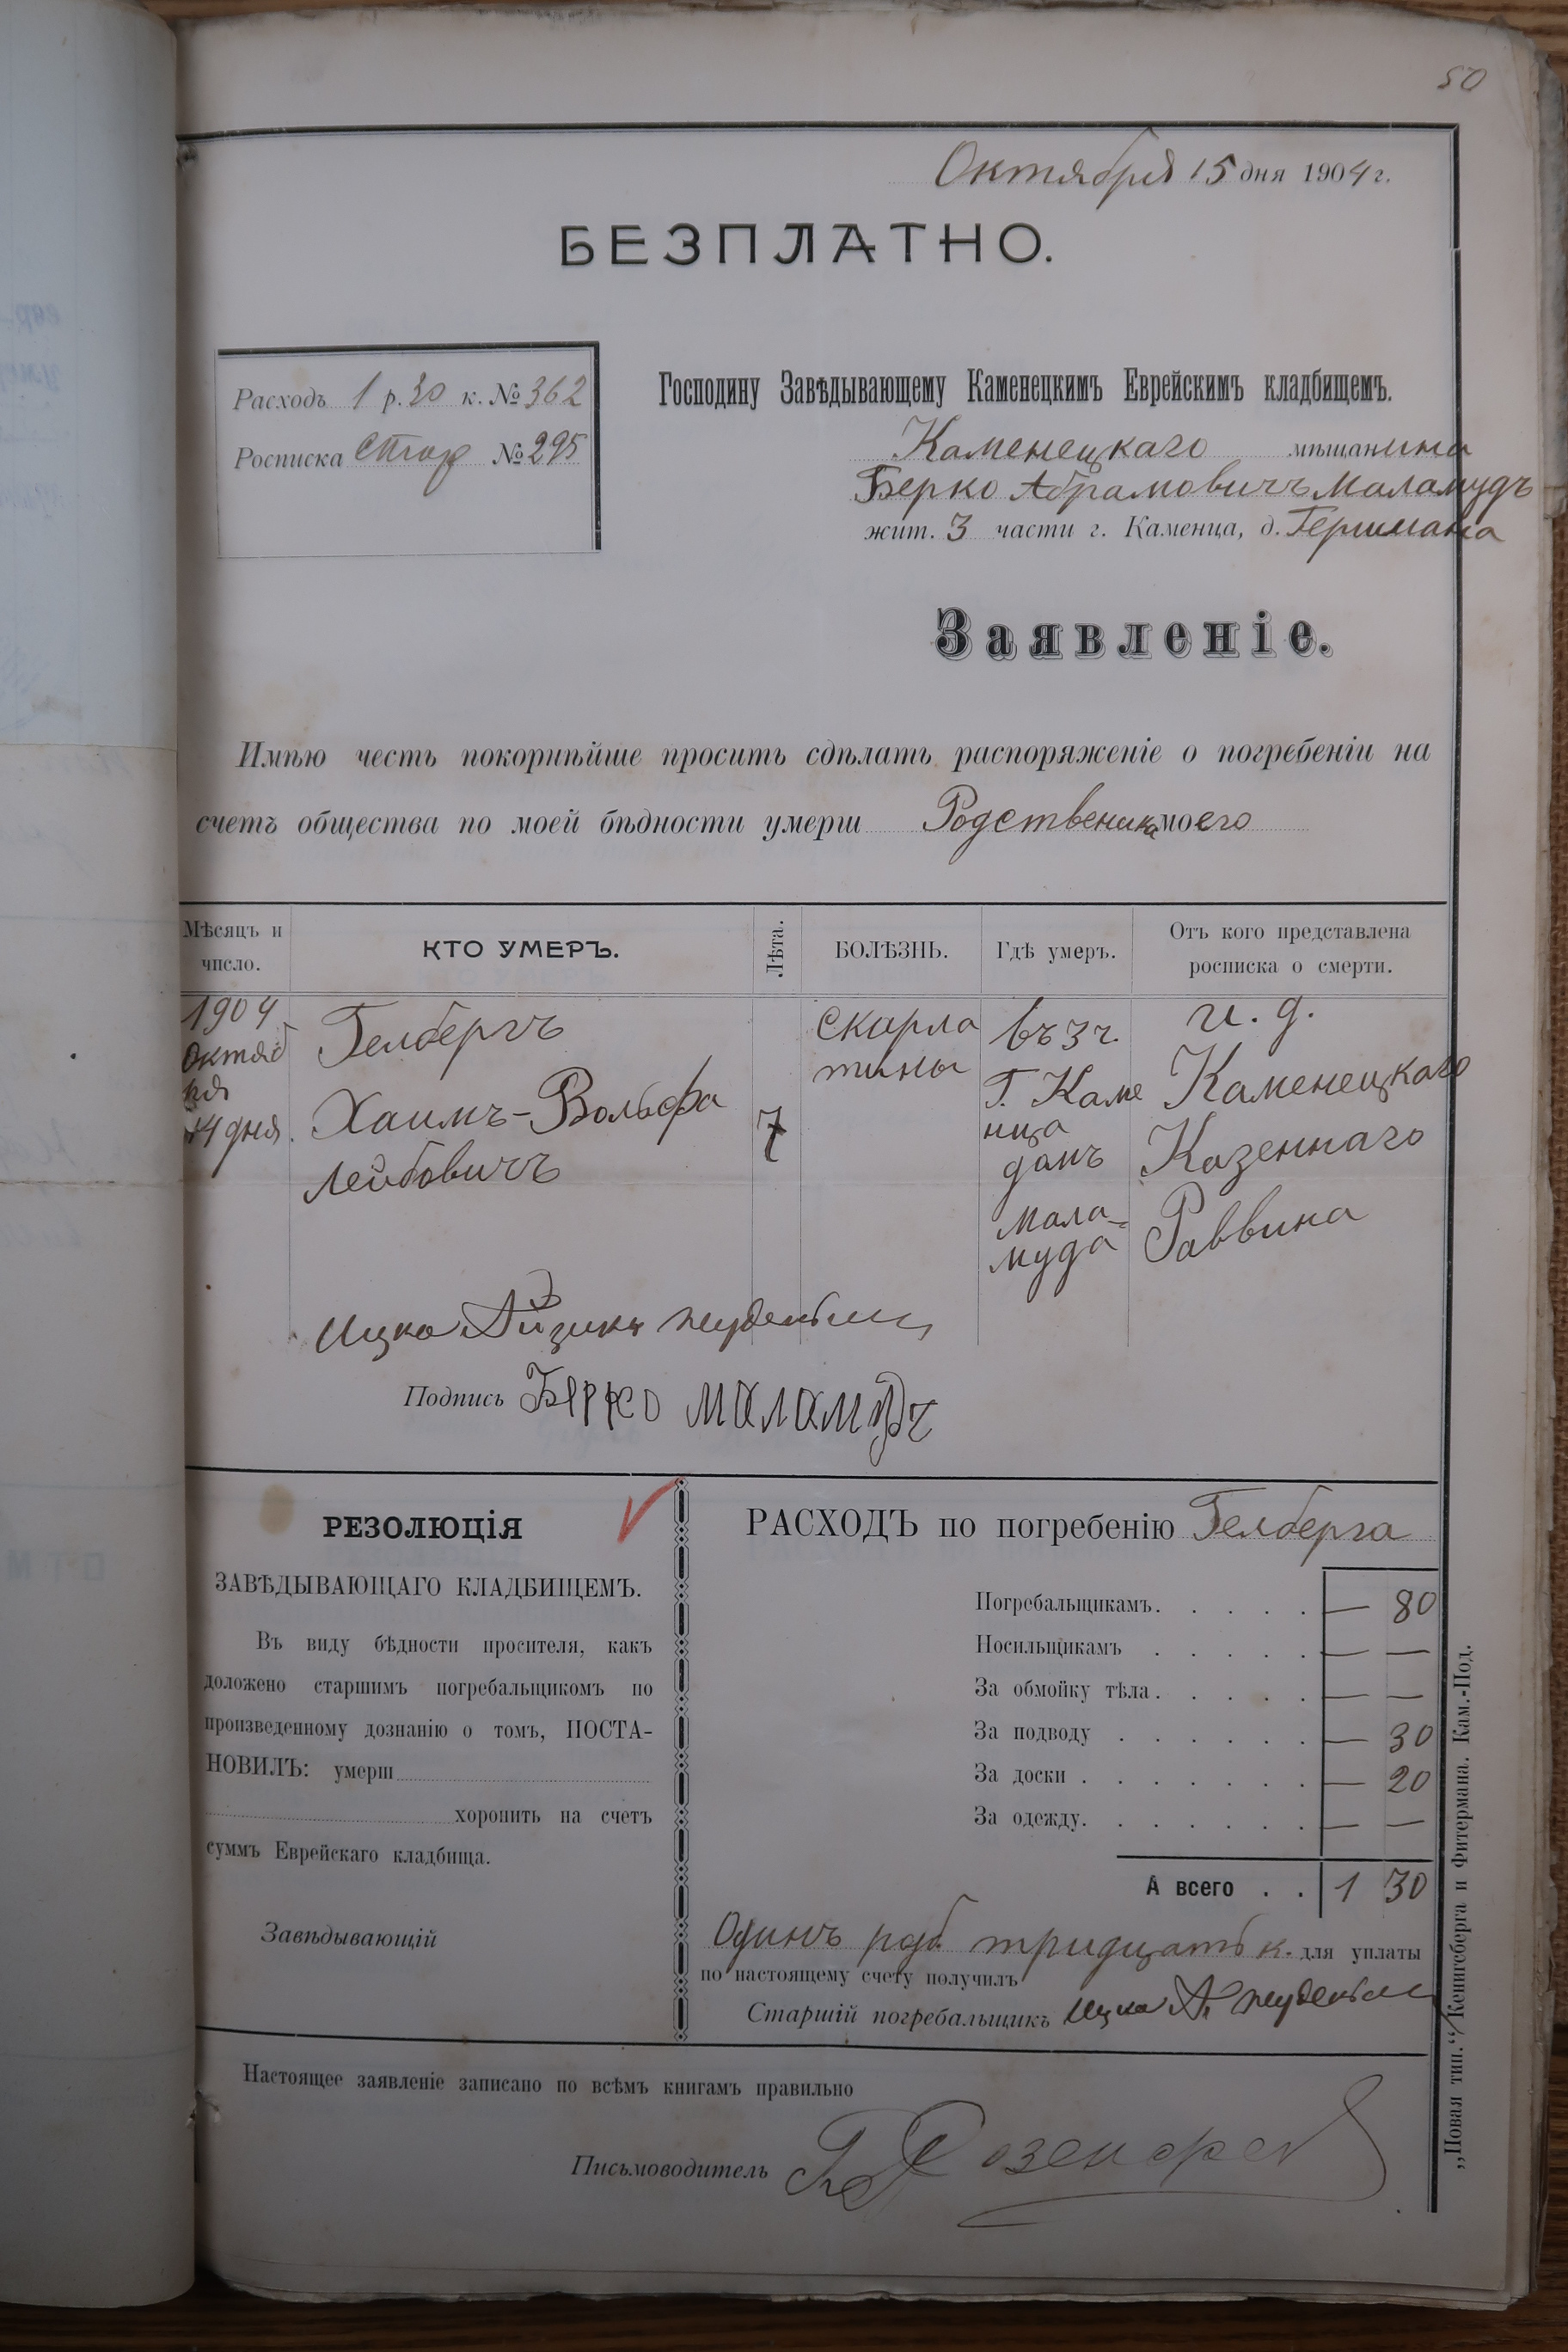 50
Октября 15 дня 1904 г.
БЕЗПЛАТНО.
Расходъ 1 р. 30 к. № 362
Росписка стар №295
Господину Завѣдывающему Каменецкимъ Еврейскимъ кладбищемъ.
Каменецкаго мѣщанина
Берко Абрамовичъ Маламудъ
жит. 3 части г. Каменца, д. Гершмана
Заявленіе.
Имѣю честь покорнѣйше просить сдѣлать распоряженіе о погребеніи на
счетъ общества по моей бѣдности умерш Родственика моего
Мѣсяцъ и число.
КТО УМЕРЪ.
Лѣта.
БОЛѢЗНЬ.
Гдѣ умеръ.
Отъ кого представлена росписка о смерти.
1904
Октяб
ря
14 дня.
Гелбергъ
Хаимъ-Вольфа
Лейбовичъ
7
скарла
тины
въ 3 ч.
Г. Каме
нца
домъ
Мала-
муда
и. д.
Каменецкаго
Казеннаго
Раввина
Ицко Айзикъ
Подпись Берко маламудъ
РЕЗОЛЮЦІЯ
ЗАВѢДЫВАЮЩАГО КЛАДБИЩЕМЪ.
Въ виду бѣдности просителя, какъ
доложено старшимъ погребальщикомъ по
произведенному дознанію о томъ, ПОСТА-
НОВИЛЪ: умерш
хоронить на счетъ
суммъ Еврейскаго кладбища.
Завѣдывающій
РАСХОДЪ по погребенію Гелберга
Погребальщикамъ. — 80
Носильщикамъ — —
За обмойку тѣла. — —
За подводу — 30
За доски — 20
За одежду. — —
А всего 1 30
Одинъ руб. тридцать к. для уплаты
по настоящему счету получилъ
Старшій погребальщикъ Ицко А.
Настоящее заявленіе записано по всѣмъ книгамъ правильно
Письмоводитель Розенфел
„Новая тип.“ Кенигсберга и Фитермана. Кам.-Под.